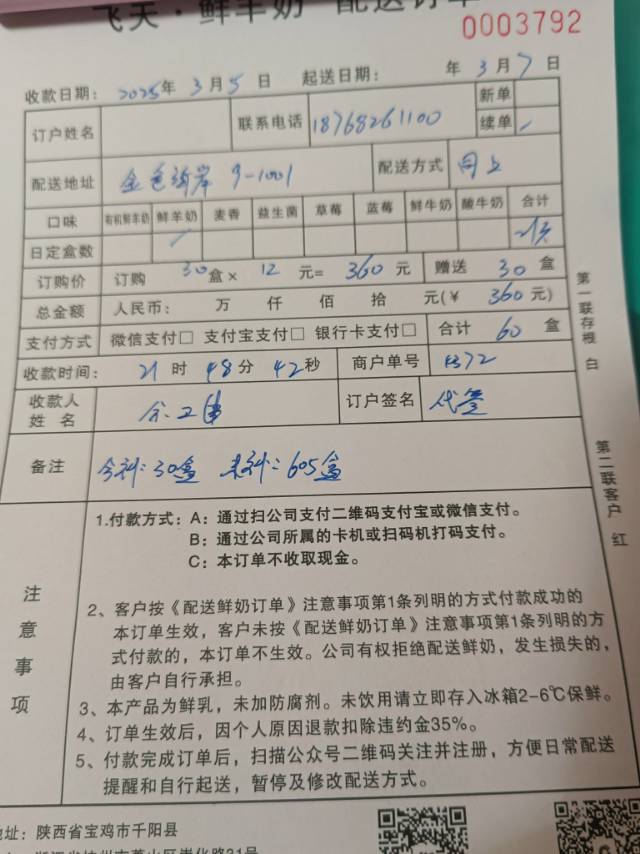 飞天·鲜羊奶 配送订单
0003792
收款日期: 2025年 3月 5日 起送日期: 年 3月 7日
订户姓名 联系电话 18768261100 新单
续单 /
配送地址 金色海岸 9-1001 配送方式 同上
口味 有机鲜羊奶 鲜羊奶 麦香 益生菌 草莓 蓝莓 鲜牛奶 酸牛奶 合计
日定盒数 /
订购价 订购 30盒× 12元= 360元 赠送 30盒
总金额 人民币: 万 仟 佰 拾 元(¥ 360元)
支付方式 微信支付□ 支付宝支付□ 银行卡支付□ 合计 60盒
收款时间: 21时 48分 42秒 商户单号 1372
收款人姓名 订户签名 代签
备注 30盒 605盒
第一联存根 白
第二联客户 红
注意事项
1.付款方式: A: 通过扫公司支付二维码支付宝或微信支付。
B: 通过公司所属的卡机或扫码机打码支付。
C: 本订单不收取现金。
2、客户按《配送鲜奶订单》注意事项第1条列明的方式付款成功的
本订单生效，客户未按《配送鲜奶订单》注意事项第1条列明的方
式付款的，本订单不生效。公司有权拒绝配送鲜奶，发生损失的，
由客户自行承担。
3、本产品为鲜乳，未加防腐剂。未饮用请立即存入冰箱2-6℃保鲜。
4、订单生效后，因个人原因退款扣除违约金35%。
5、付款完成订单后，扫描公众号二维码关注并注册，方便日常配送
提醒和自行起送，暂停及修改配送方式。
地址: 陕西省宝鸡市千阳县